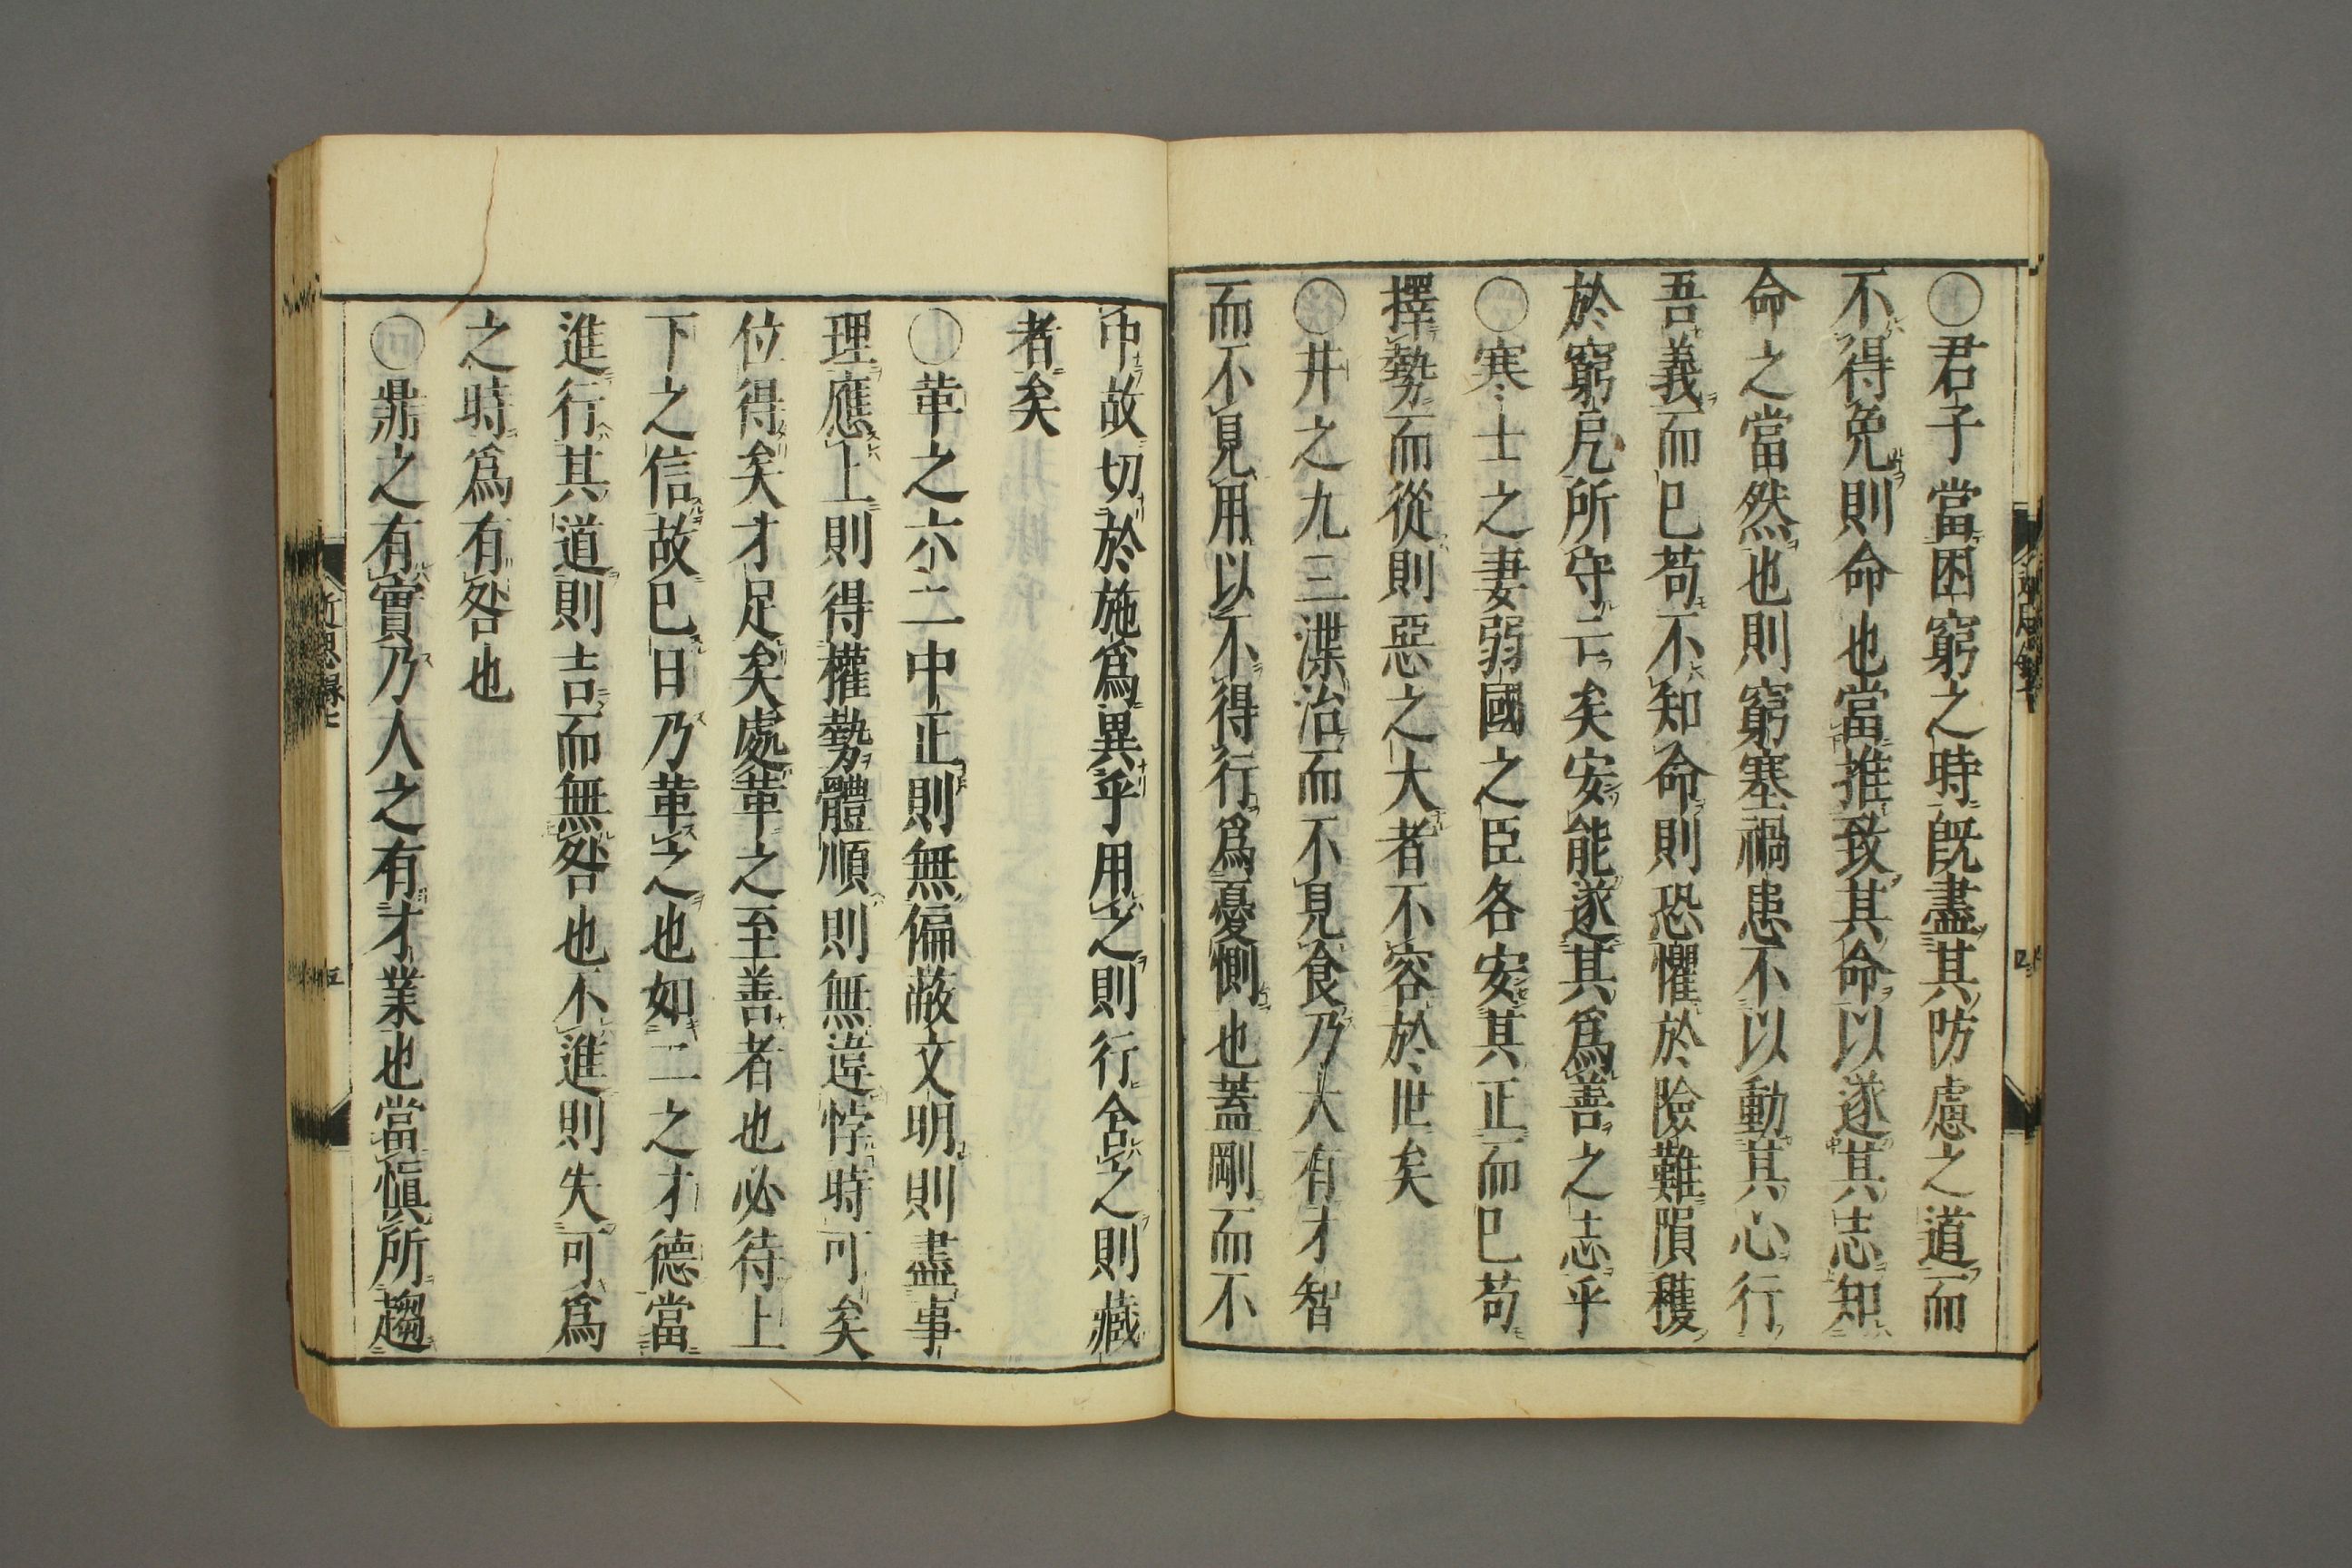 〇君子當困窮之時既盡其防慮之道而
不得免則命也當推致其命以遂其志知
命之當然也則窮塞禍患不以動其心行
吾義而已苟不知命則恐懼於險難隕穫
於窮戹所守亡矣安能遂其爲善之志乎
〇寒士之妻弱國之臣各安其正而已苟
擇勢而從則惡之大者不容於世矣
〇井之九三渫治而不見食乃人有才智
而不見用以不得行爲憂惻也蓋剛而不
中故切於施爲異乎用之則行舍之則藏
者矣
〇革之六二中正則無偏蔽文明則盡事
理應上則得權勢體順則無違悖時可矣
位得矣才足矣處革之至善者也必待上
下之信故已日乃革之也如二之才德當
進行其道則吉而無咎也不進則失可爲
之時爲有咎也
〇鼎之有實乃人之有才業也當慎所趨
近思録七
五